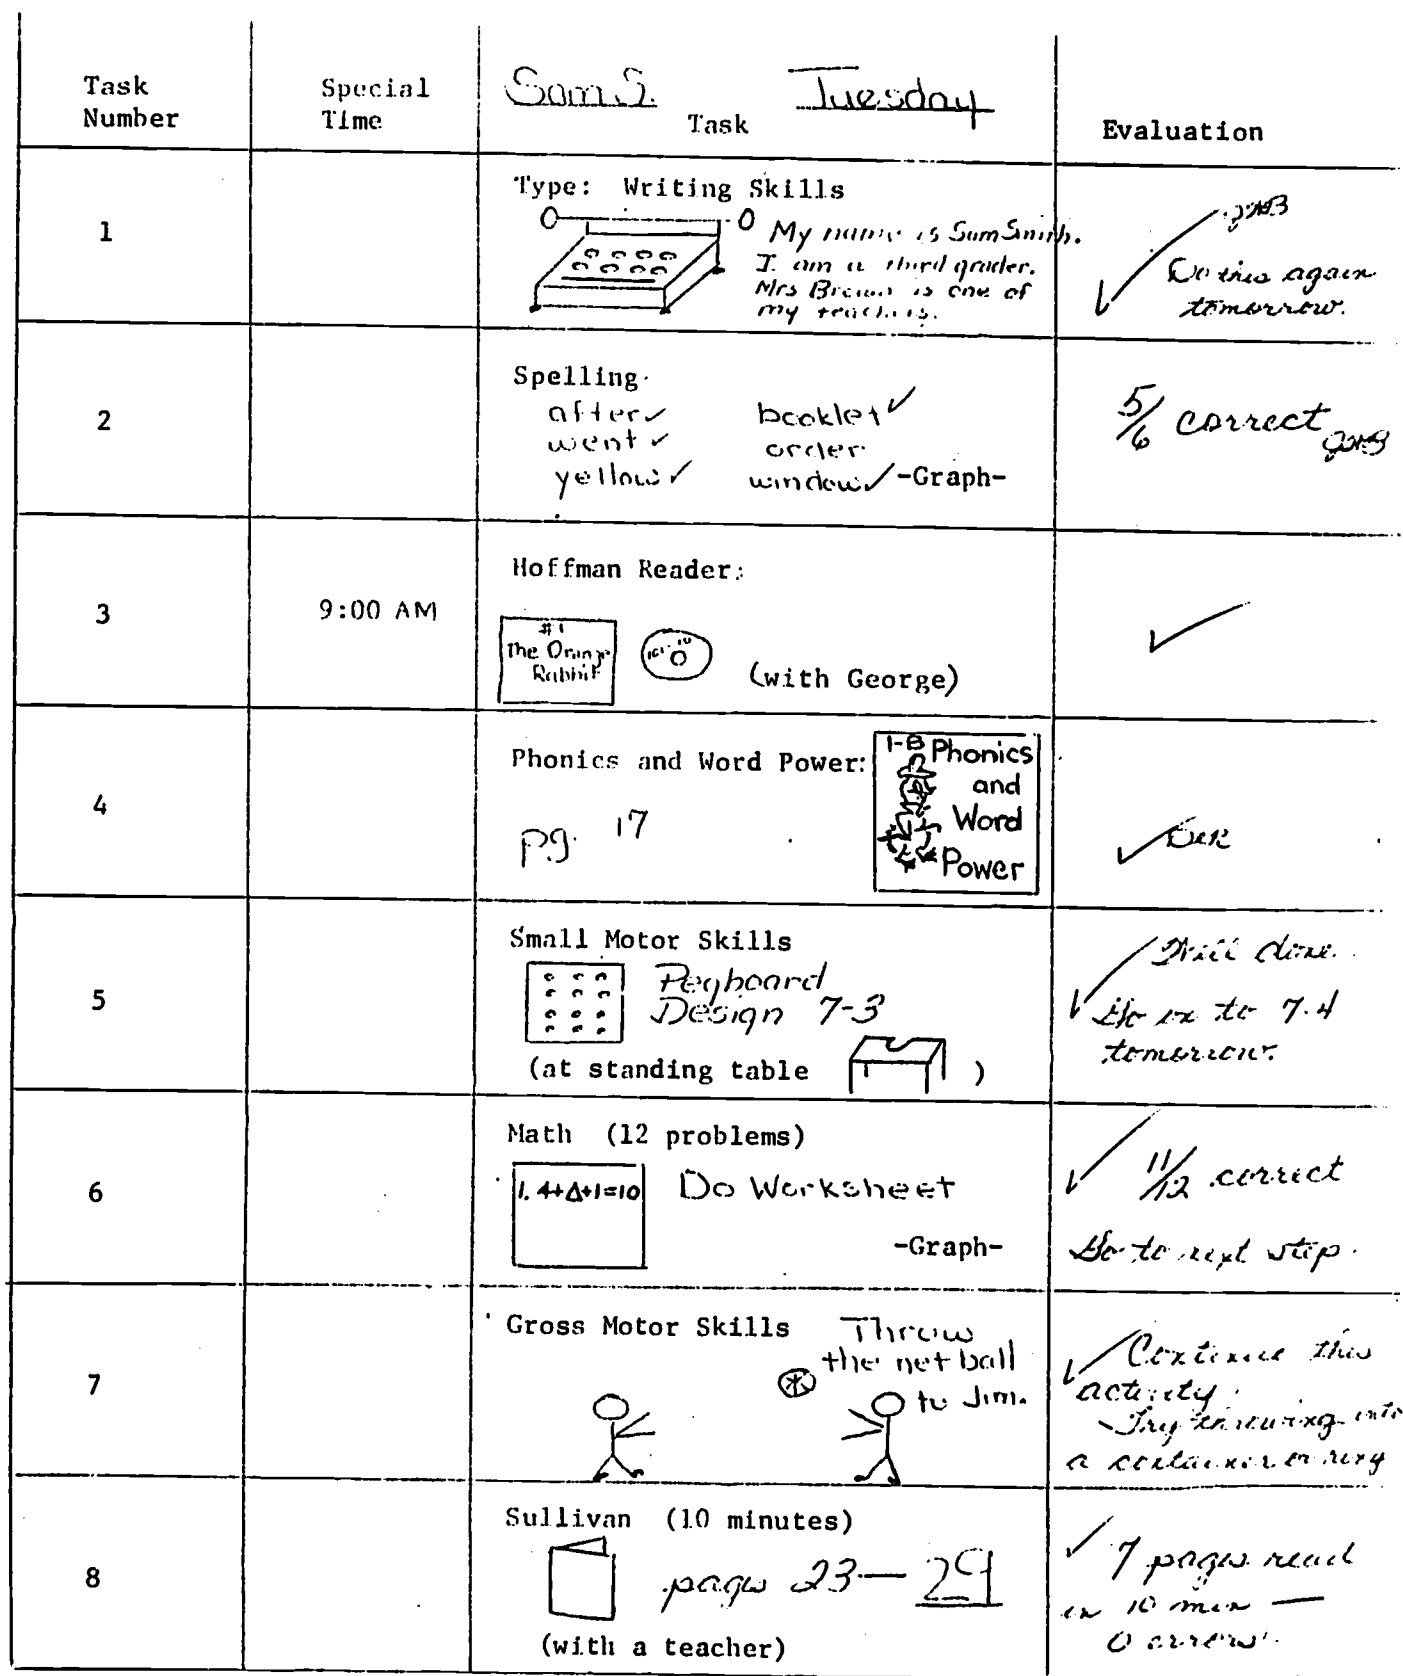 Task Number
Special Time
Sam S. Tuesday
Task
Evaluation
1
Type: Writing Skills
My name is Sam Smith.
I am a third grader.
Mrs Brown is one of
my teachers.
Do this again
tomorrow.
2
Spelling
after✓ booklet✓
went✓ order
yellow✓ window✓ -Graph-
5/6 correct
3
9:00 AM
Hoffman Reader:
#1
The Orange
Rabbit
(with George)
✓
4
Phonics and Word Power:
pg. 17
1-B Phonics
and
Word
Power
✓
5
Small Motor Skills
Pegboard
Design 7-3
(at standing table )
✓ Well done.
Go on to 7-4
tomorrow.
6
Math (12 problems)
1. 4+Δ+1=10
Do Worksheet
-Graph-
✓ 11/12 correct
Go to next step.
7
Gross Motor Skills
Throw
the net ball
to Jim.
✓ Continue this
activity.
-Try throwing into
a container or ring
8
Sullivan (10 minutes)
pages 23—29
(with a teacher)
✓ 7 pages read
in 10 min —
0 errors.